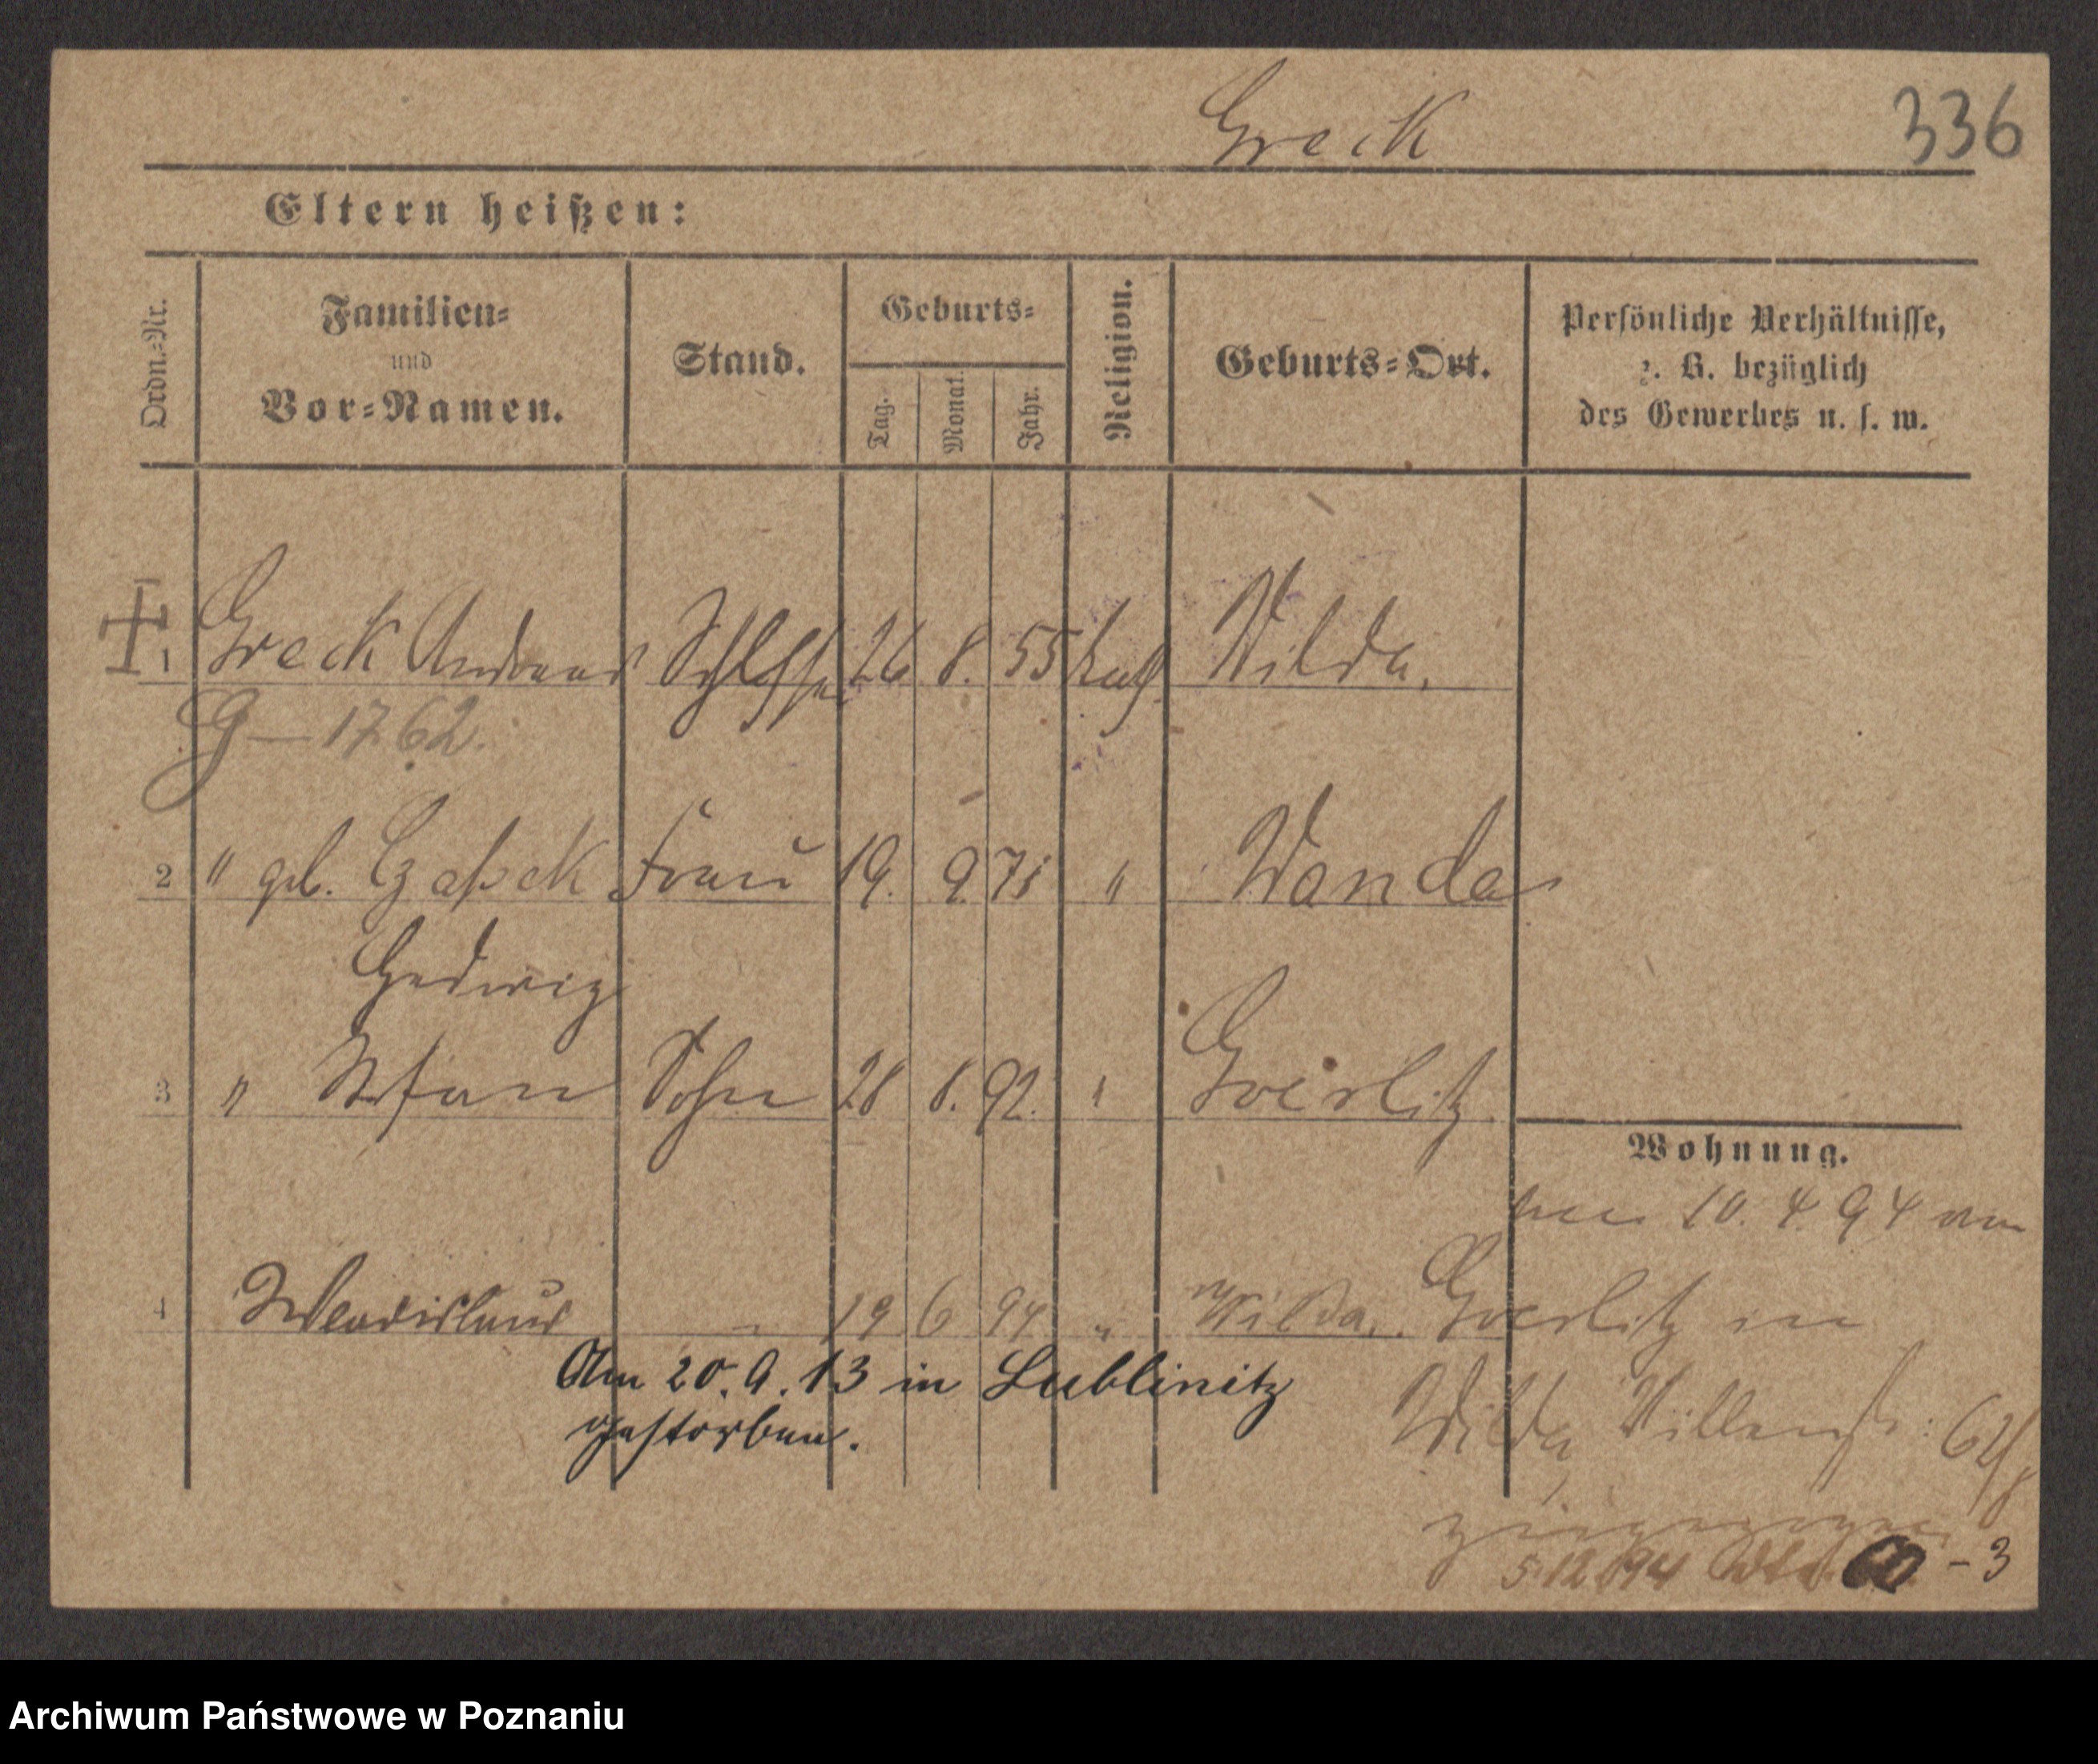 Greck 336
Eltern heißen:
Ordn.-Nr. Familien= und Vor=Namen. Stand. Geburts= Tag. Monat. Jahr. Religion. Geburts=Ort. Persönliche Verhältnisse, z. B. bezüglich des Gewerbes u. s. w.
1 Greck Andreas 26 8. 55 kath. Wilda.
G — 1762.
2 " geb. Frau 19. 9. " Wanda
Hedwig
3 " Stefan Sohn 28 8. 92. " Goerlitz
Wohnung.
10. 4 94 von
4 Wladislaus - 19 6 94 " Wilda. Goerlitz in
Am 20. 9. 13 in Lublinitz
Wilda
gestorben.
zugezogen
5.12.94 - 3
Archiwum Państwowe w Poznaniu